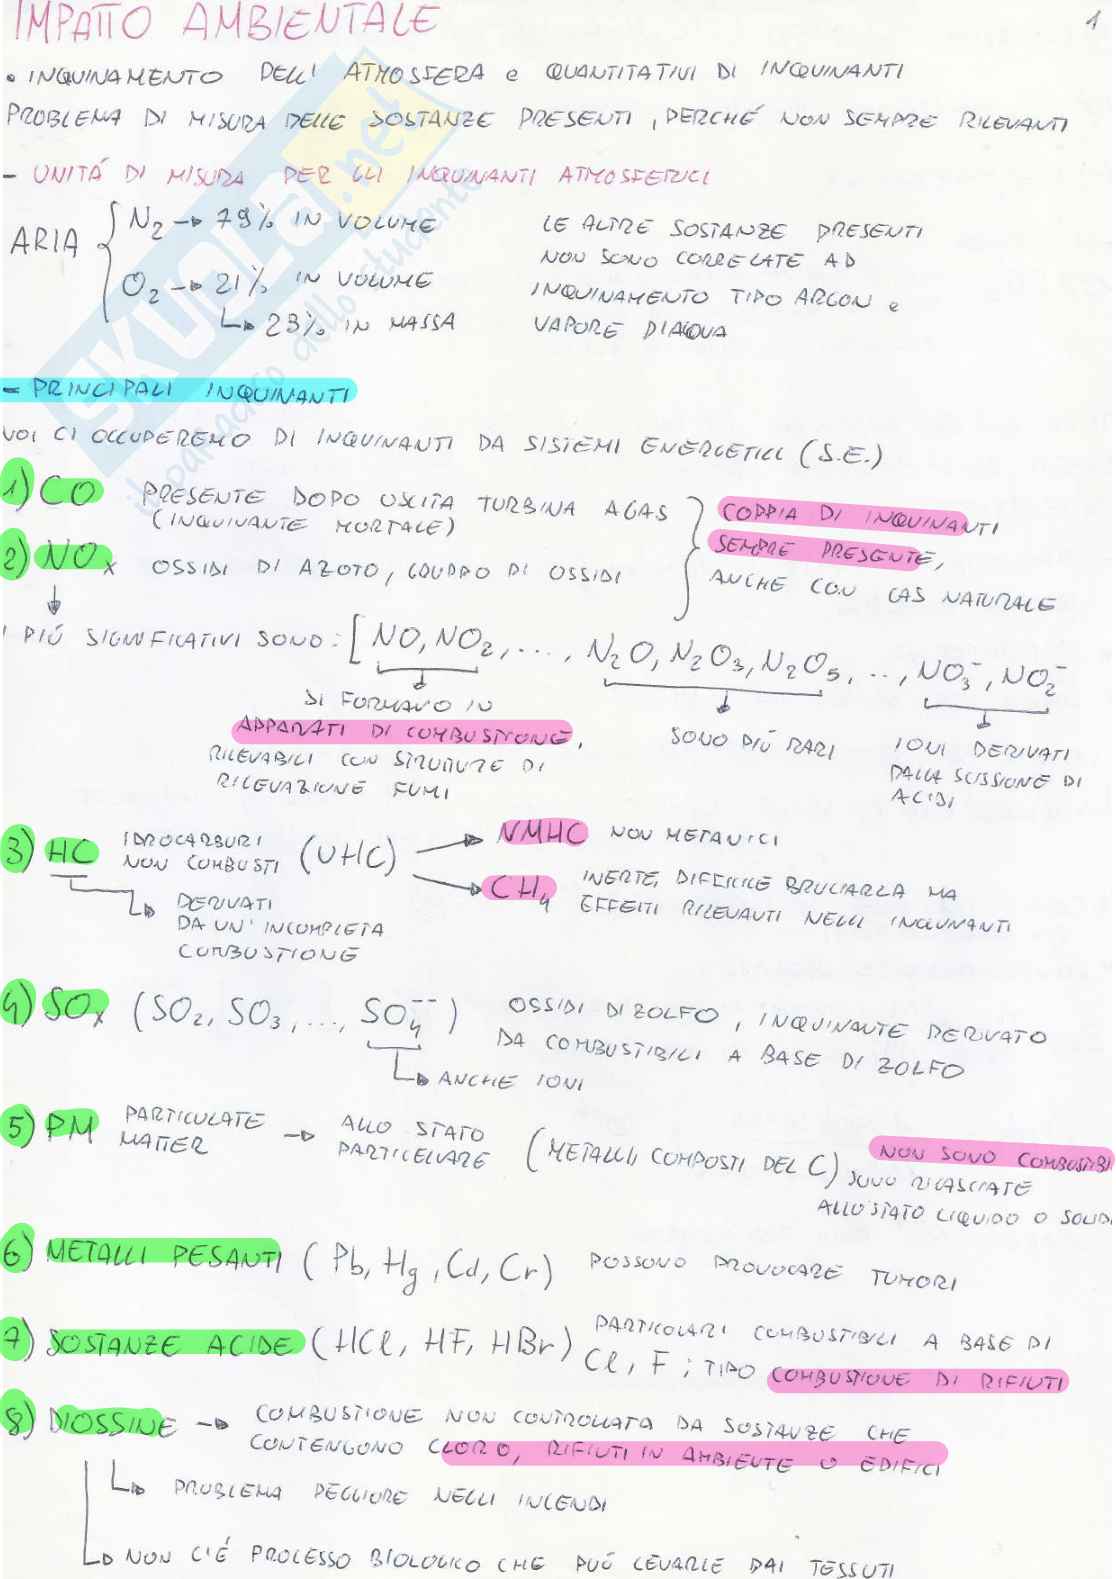 IMPATTO AMBIENTALE
1
• INQUINAMENTO DELL' ATMOSFERA e QUANTITATIVI DI INQUINANTI
PROBLEMA DI MISURA DELLE SOSTANZE PRESENTI, PERCHÉ NON SEMPRE RILEVANTI
- UNITÁ DI MISURA PER GLI INQUINANTI ATMOSFERICI
ARIA { N2 → 79% IN VOLUME
O2 → 21% IN VOLUME
↳ 23% IN MASSA
LE ALTRE SOSTANZE PRESENTI
NON SONO CORRELATE AD
INQUINAMENTO TIPO ARGON e
VAPORE D'ACQUA
- PRINCIPALI INQUINANTI
NOI CI OCCUPEREMO DI INQUINANTI DA SISTEMI ENERGETICI (S.E.)
1) CO PRESENTE DOPO USCITA TURBINA A GAS
(INQUINANTE MORTALE)
2) NOx OSSIDI DI AZOTO, GRUPPO DI OSSIDI
COPPIA DI INQUINANTI
SEMPRE PRESENTE,
ANCHE CON GAS NATURALE
I PIÚ SIGNIFICATIVI SONO: [NO, NO2, ..., N2O, N2O3, N2O5, ..., NO3⁻, NO2⁻
SI FORMANO IN
APPARATI DI COMBUSTIONE,
RILEVABILI CON STRUTTURE DI
RILEVAZIONE FUMI
SONO PIÚ RARI
IONI DERIVATI
DALLA SCISSIONE DI
ACIDI
3) HC IDROCARBURI
NON COMBUSTI (UHC)
NMHC NON METANICI
CH4 INERTE, DIFFICILE BRUCIARLA MA
EFFETTI RILEVANTI NEGLI INQUINANTI
DERIVATI
DA UN' INCOMPLETA
COMBUSTIONE
4) SOx (SO2, SO3, ..., SO4⁻⁻) OSSIDI DI ZOLFO, INQUINANTE DERIVATO
DA COMBUSTIBILI A BASE DI ZOLFO
↳ ANCHE IONI
5) PM PARTICULATE
MATTER → ALLO STATO
PARTICELLARE (METALLI, COMPOSTI DEL C) NON SONO COMBUSTIBI
SONO RILASCIATE
ALLO STATO LIQUIDO O SOLID
6) METALLI PESANTI (Pb, Hg, Cd, Cr) POSSONO PROVOCARE TUMORI
7) SOSTANZE ACIDE (HCl, HF, HBr) PARTICOLARI COMBUSTIBILI A BASE DI
Cl, F ; TIPO COMBUSTIONE DI RIFIUTI
8) DIOSSINE → COMBUSTIONE NON CONTROLLATA DA SOSTANZE CHE
CONTENGONO CLORO, RIFIUTI IN AMBIENTE O EDIFICI
↳ PROBLEMA PEGGIORE NEGLI INCENDI
↳ NON C'É PROCESSO BIOLOGICO CHE PUÓ LEVARLE DAI TESSUTI
SKUOLA.net
il paradiso dello studente